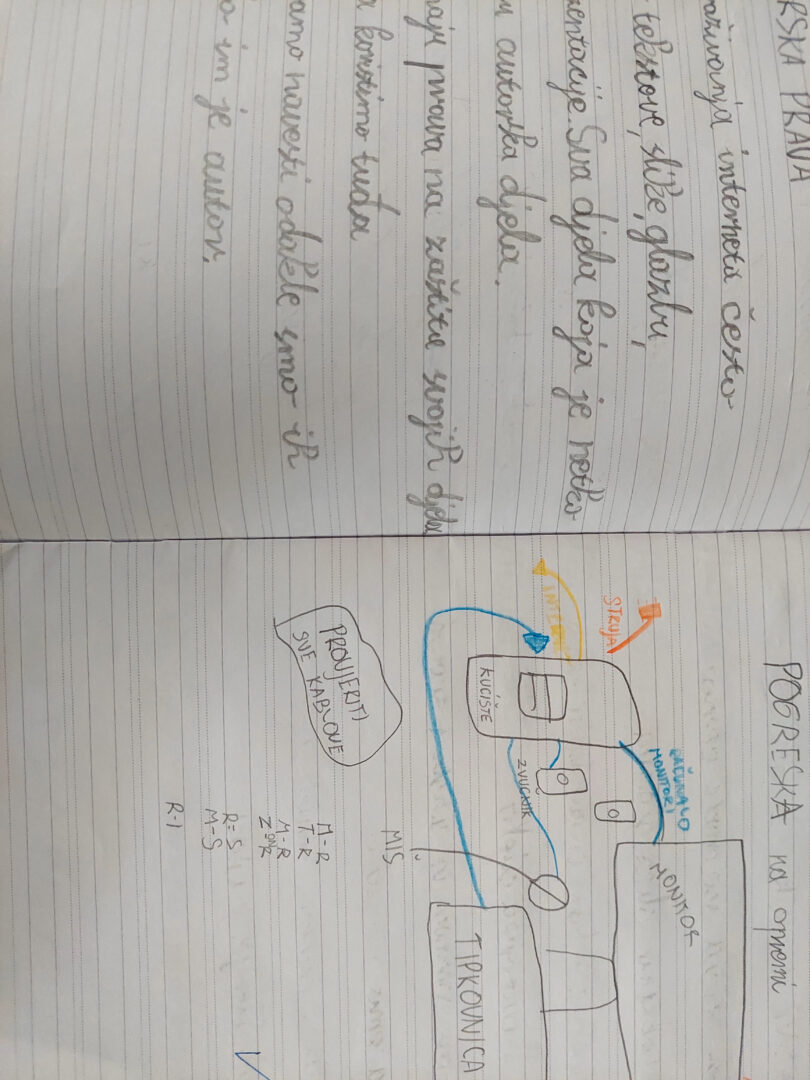 RSKA PRAVA
interneta često
tekstove, slike, glazbu,
mentacije. Sva djela koja je netko
autorska djela.
maju prava na zaštitu svojih djela
koristimo tuđa
amo navesti odakle smo ih
o im je autor.
POGREŠKA na opremi
STRUJA
INTERNET
RAČUNALO
MONITORI
MONITOR
KUĆIŠTE
ZVUČNIK
MIŠ
TIPKOVNICA
PROVJERITI
SVE KABLOVE
M-R
T-R
M-R
R=S
M-S
R-I